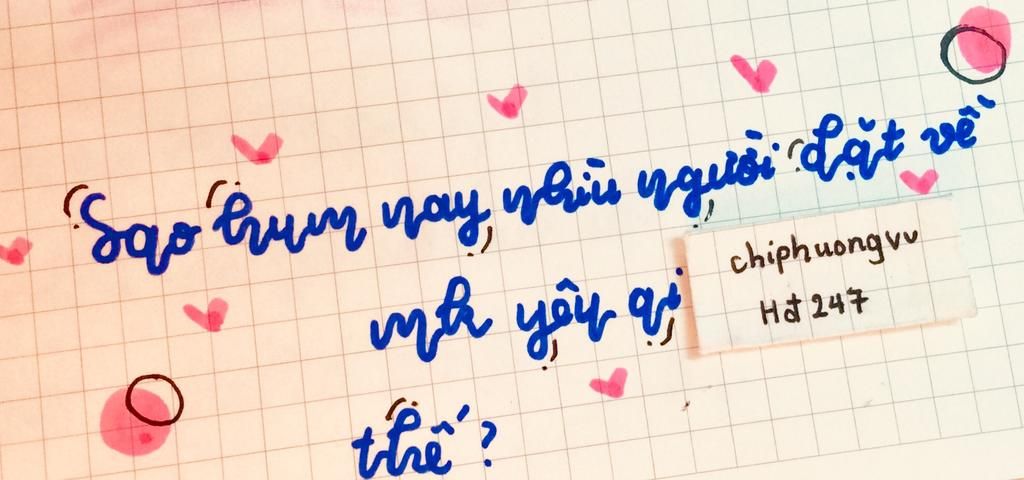 Sao hum nay nhìu người đặt về
mk yêu ai
thế?
chiphuongvv
Hđ 247